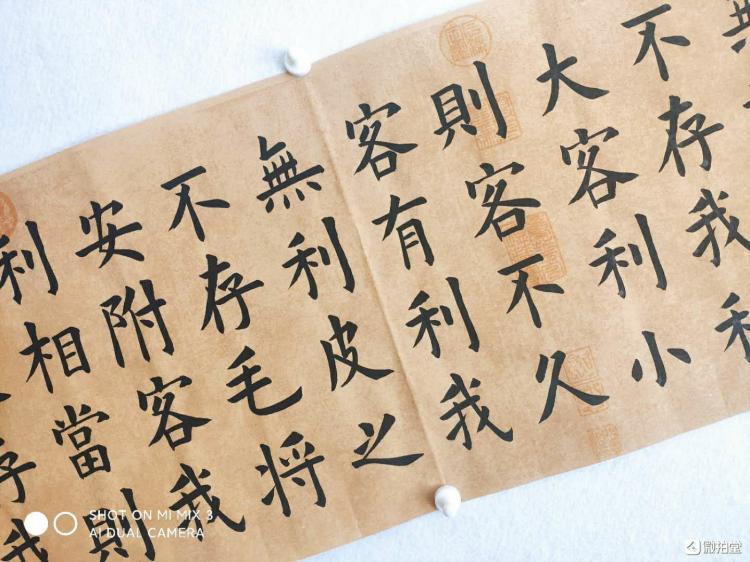 不存我利
大客利小
則客不久
客有利我
無利皮之
不存毛将
安附客我
利相當則
存我
SHOT ON MI MIX 3
AI DUAL CAMERA
微拍堂